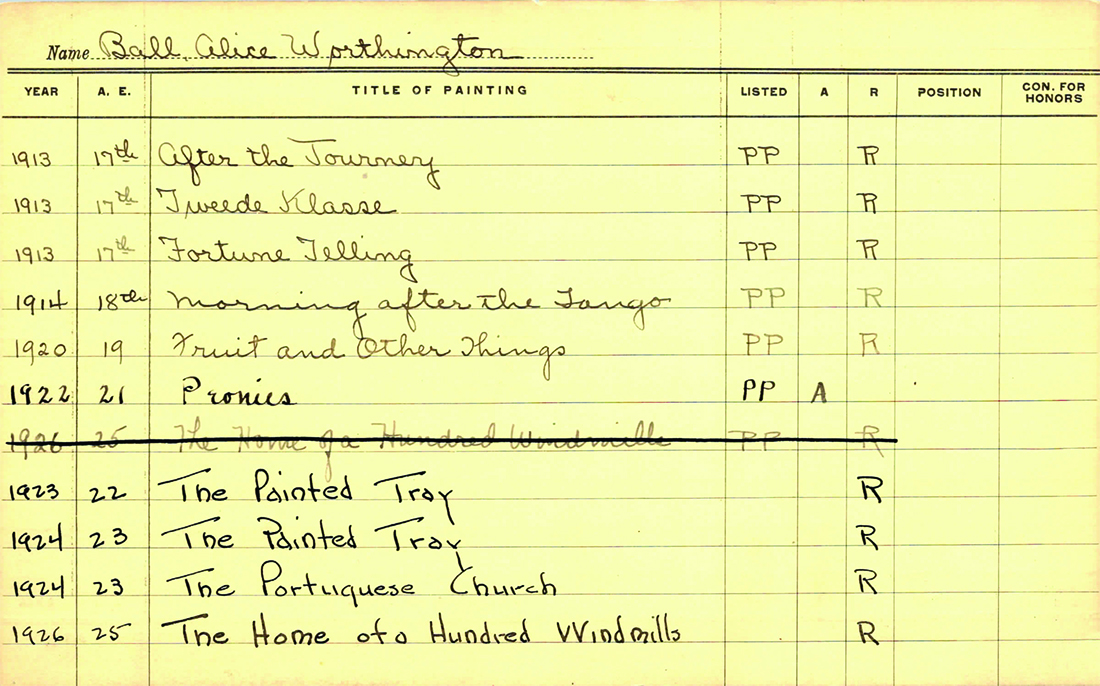 Name Ball, Alice Worthington
YEAR A. E. TITLE OF PAINTING LISTED A R POSITION CON. FOR HONORS
1913 17th After the Tourney PP R
1913 17th Tweede Klasse PP R
1913 17th Fortune Telling PP R
1914 18th Morning after the Tango PP R
1920 19 Fruit and Other Things PP R
1922 21 Peonies PP A
1926 25 The Home of a Hundred Windmills PP R
1923 22 The Painted Tray R
1924 23 The Painted Tray R
1924 23 The Portuguese Church R
1926 25 The Home of a Hundred Windmills R